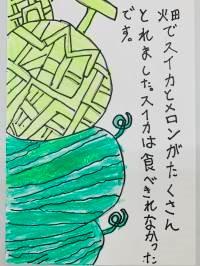 畑でスイカとメロンがたくさん
とれました。スイカは食べきれなかった
です。